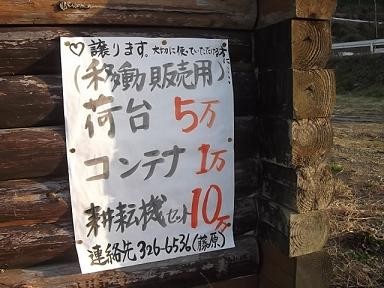 ♡譲ります。大切に使っていただける方に…
(移動販売用)
荷台 5万
コンテナ 1万
耕耘機セット10万
連絡先 326-6536(藤原)